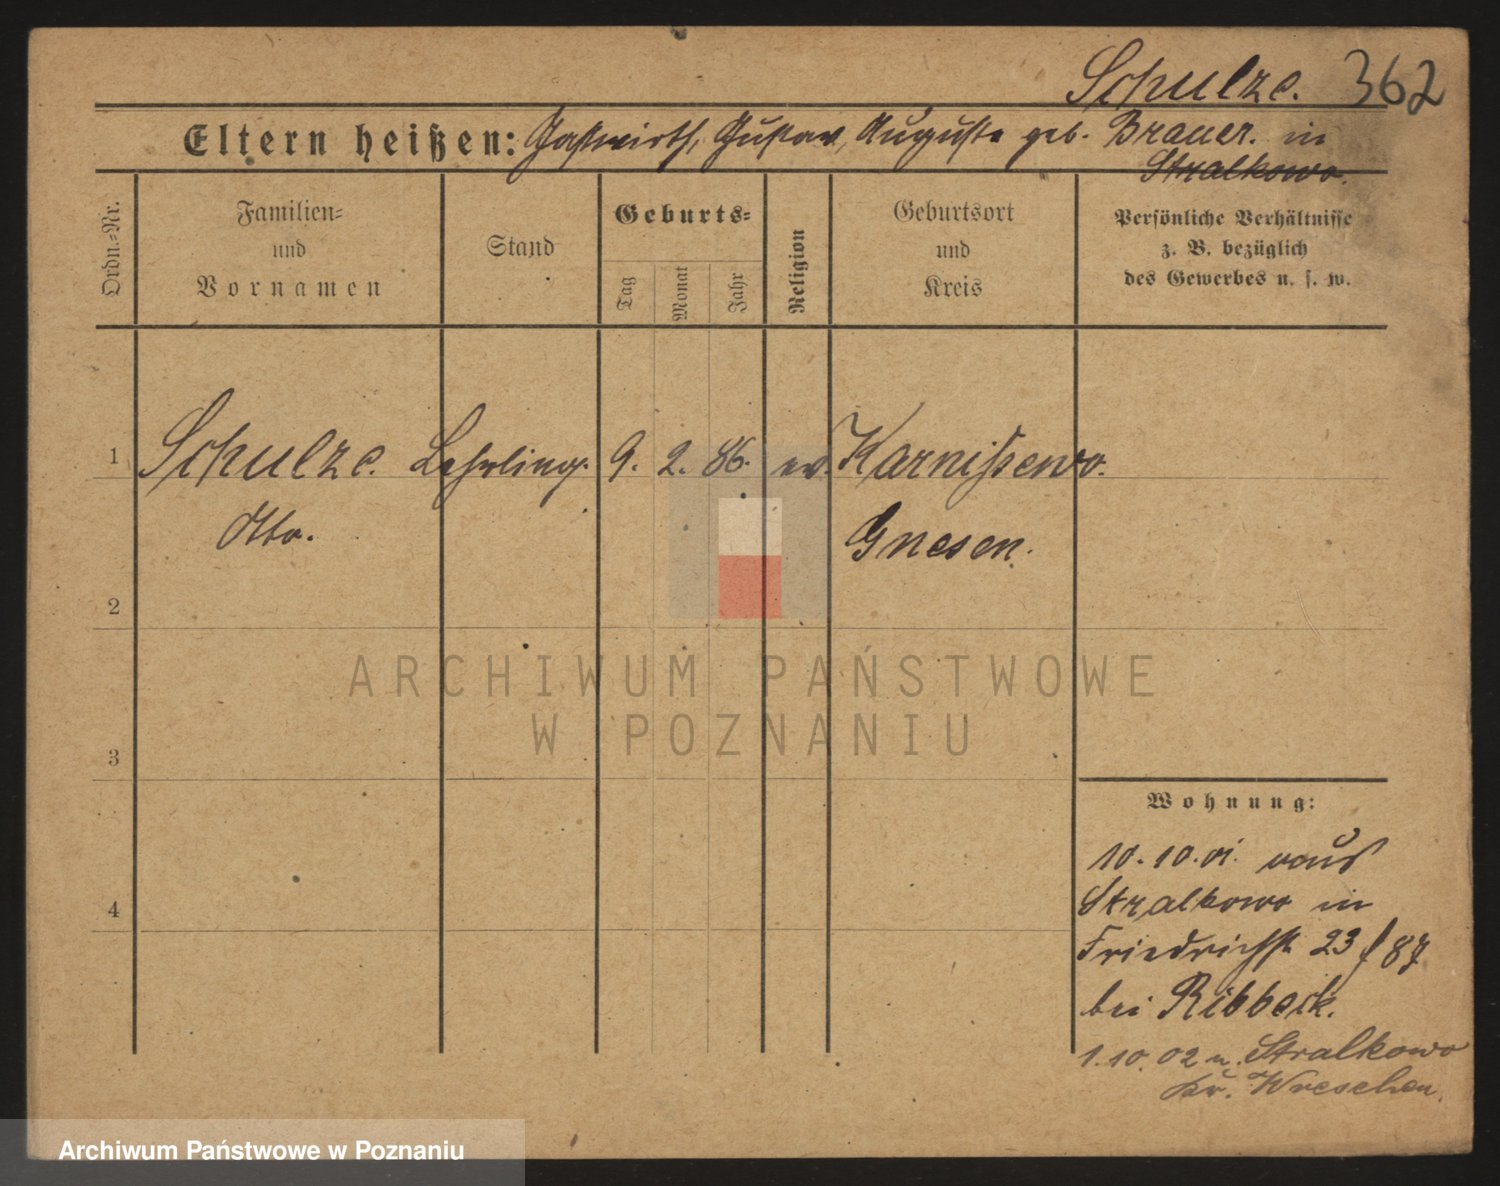 Schulze. 362
Eltern heißen: Gastwirth, Gustav, Auguste geb. Brauer. in
Stralkowo.
Ordn.=Nr.
Familien=
und
Vornamen
Stand
Geburts=
Tag
Monat
Jahr
Religion
Geburtsort
und
Kreis
Persönliche Verhältnisse
z. B. bezüglich
des Gewerbes u. s. w.
1 Schulze. Lehrling. 9. 2. 86. ev. Karnißewo.
Otto. Gnesen.
2
3
4
Wohnung:
10.10.01. aus
Stralkowo in
Friedrichst 23 / 87
bei Ribbeck.
1.10.02 n. Stralkowo
Kr. Wreschen.
ARCHIWUM PAŃSTWOWE
W POZNANIU
Archiwum Państwowe w Poznaniu